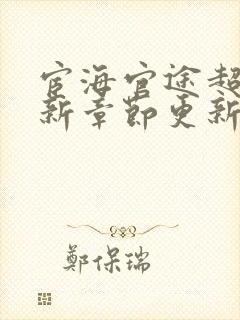 宦海官途超
新章節更新
鄭保瑞